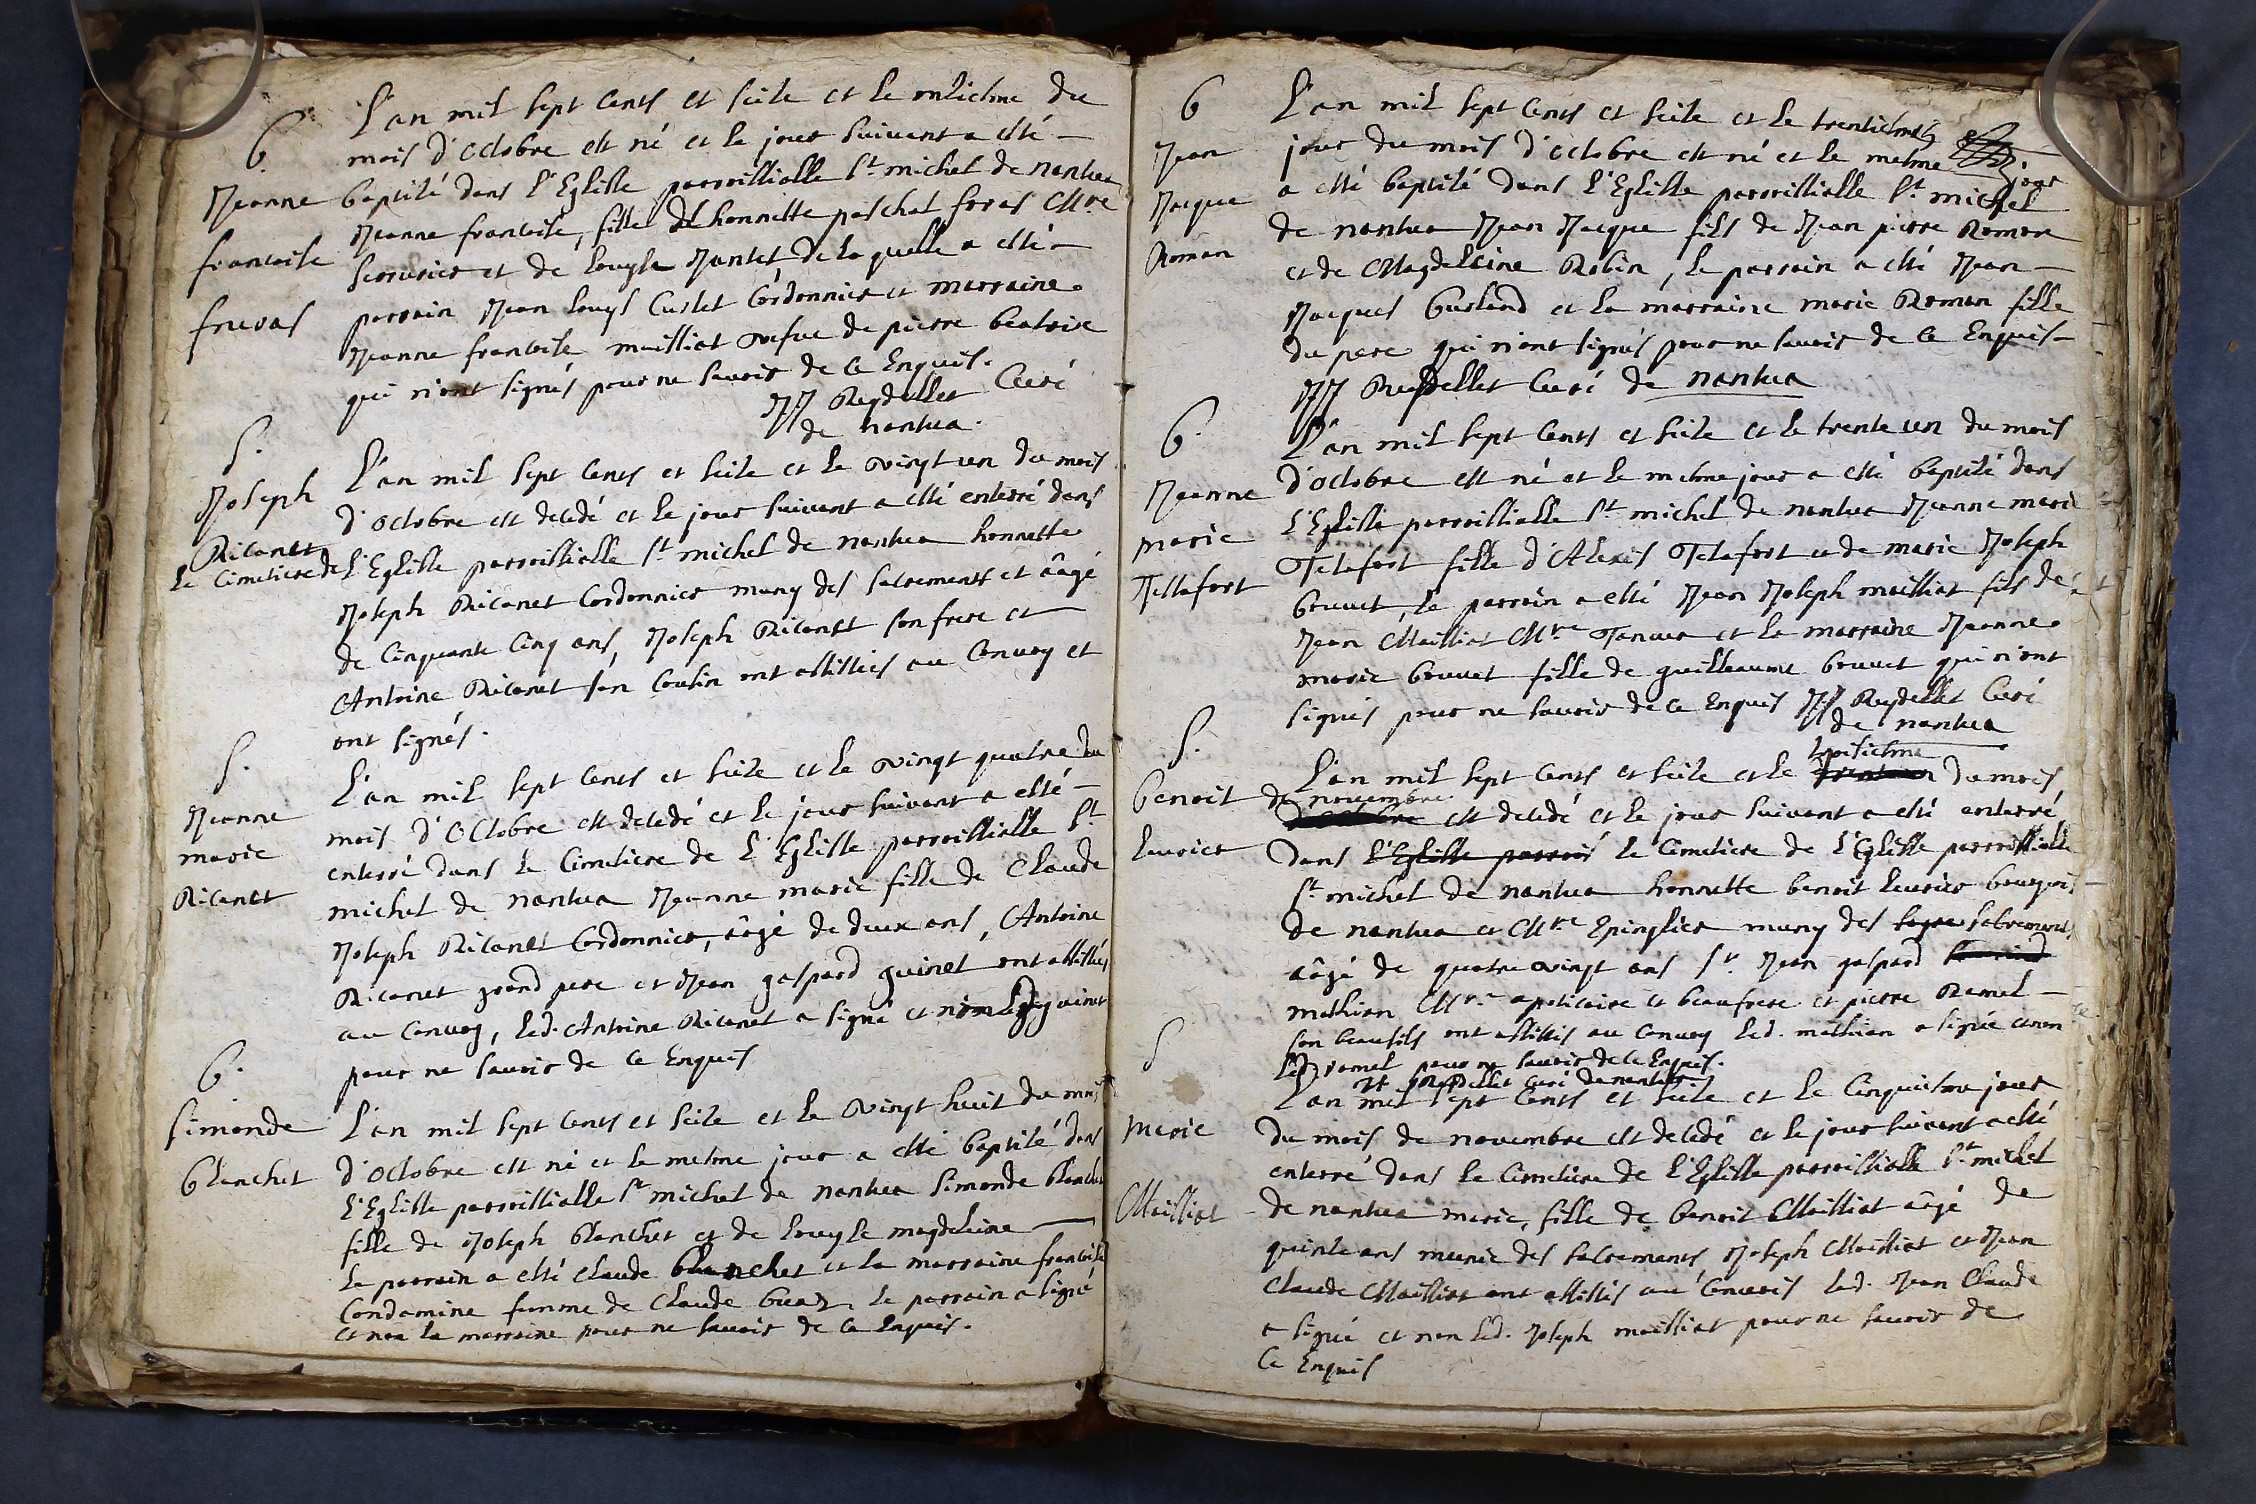 B.
Jeanne
francoise
fueras
L'an mil sept cents et seize et le onziesme du
mois d'octobre est né et le jour suivant a esté
baptisé dans l'Eglisse parroissialle St michel de nantua
Jeanne francoise, fille de honnette paschal foras Mre
serrurier et de Louyse Jantet, de laquelle a esté
parrain Jean Louys Custet Cordonnier et marraine
Jeanne francoise mailliat vefue de pierre beatrice
qui n'ont signés pour ne sauoir de ce Enquis.
JJ Reydellet Curé
de nantua.
S.
Joseph
Ricanet
L'an mil sept cents et seize et le vingt un du mois
d'octobre est decedé et le jour suivant a esté enterré dans
le Cimetiere de l'Eglisse parroissialle St michel de nantua honnette
Joseph Ricanet Cordonnier muny des sacrements et aâgé
de Cinquante Cinq ans, Joseph Ricanet son frere et
Antoine Ricanet son Cousin ont assistés au Convoy et
ont signés.
S.
Jeanne
marie
Ricanet
L'an mil sept cents et seize et le vingt quatre du
mois d'octobre est decedé et le jour suivant a esté
enterré dans le Cimetiere de l'Eglisse parroissialle St
michel de nantua Jeanne marie fille de Claude
Joseph Ricanet Cordonnier, aâgé de deux ans, Antoine
Ricanet grand pere et Jean gaspard guinet ont assistés
au Convoy, led. Antoine Ricanet a signé et non led. guinet
pour ne sauoir de ce Enquis
B.
simonde
blanchet
L'an mil sept cents et seize et le vingt huit du mois
d'octobre est né et le mesme jour a esté baptisé dans
l'Eglisse parroissialle St michel de nantua simonde blanchet
fille de Joseph blanchet et de Louyse magdeleine
le parrain a esté Claude blanchet et la marraine francoise
Condamine femme de Claude le parrain a signé
et non la marraine pour ne sauoir de ce enquis.
B
Jean
Jacque
Roman
L'an mil sept cents et seize et le trentiesme
jour du mois d'octobre est né et le mesme jour
a esté baptisé dans l'Eglisse parroissialle St michel
de nantua Jean Jacque fils de Jean pierre Roman
et de Magdeleine Robin, le parrain a esté Jean
Jacques Gurland et la marraine marie Roman fille
du pere qui n'ont signés pour ne sauoir de ce Enquis
JJ Reydellet Curé de nantua
B.
Jeanne
marie
Tettafort
L'an mil sept cents et seize et le trente un du mois
d'octobre est né et le mesme jour a esté baptisé dans
l'Eglisse parroissialle St michel de nantua Jeanne marie
Tetafort fille d'Alexis Tetafort et de marie Joseph
bouuet, le parrain a esté Jean Joseph mailliat fils de
Jean Mailliat Mre Taneur et la marraine Jeanne
marie bouuet fille de guilleaume bouuet qui n'ont
signés pour ne sauoir de ce Enquis JJ Reydellet Curé
de nantua
S.
benoit
leurier
L'an mil sept cents et seize et le troisiesme du mois
de nouembre
d'octobre est decedé et le jour suivant a esté enterré
dans l'Eglisse parrois le Cimetiere de l'Eglisse parroissialle
St michel de nantua honnette benoit leurier bourgeois
de nantua et Mre Epinglier muny des sacrements
aâgé de quatre vingt ans Sr. Jean gaspard
mathian Mre apoticaire et beaufrere et pierre Ramel
son beaufils ont assistés au Convoy led. mathian a signé et non
led. ramel pour ne sauoir de ce Enquis.
JJ Reydellet curé de nantua.
S
marie
Mailliat
L'an mil sept cents et seize et le Cinquiesme jour
du mois de nouembre est decedé et le jour suivant a esté
enterré dans le Cimetiere de l'Eglisse parroissialle St michel
de nantua marie, fille de benoit Mailliat aâgé de
quinze ans munie des sacrements, Joseph Mailliat et Jean
Claude Mailliat ont assistés au Conuois led. Jean Claude
a signé et non led. Joseph mailliat pour ne sauoir de
ce Enquis